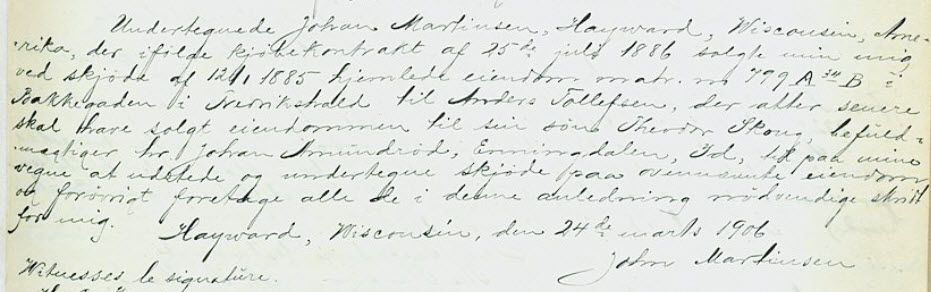 Undertegnede Johan Martinsen, Hayward, Wisconsin, Ame-
rika, der ifölge kjöbekontrakt af 25de juli 1886 solgte min mig
ved skjöde af 12/1 1885 hjemlede eiendom matr. no 799 A B i
Bakkegaden i Fredrikshald til Anders Tollefsen, der atter senere
skal have solgt eiendommen til sin sön Theodor Skoug, befuld-
mægtiger hr. Johan Amundröd, Enningdalen, Id, til paa mine
vegne at udstede og undertegne skjöde paa ovennævnte eiendom
og forövrigt foretage alle de i denne anledning nödvendige skridt
for mig.
Hayward, Wisconsin, den 24de marts 1906
John Martinsen
Witnesses to signature.